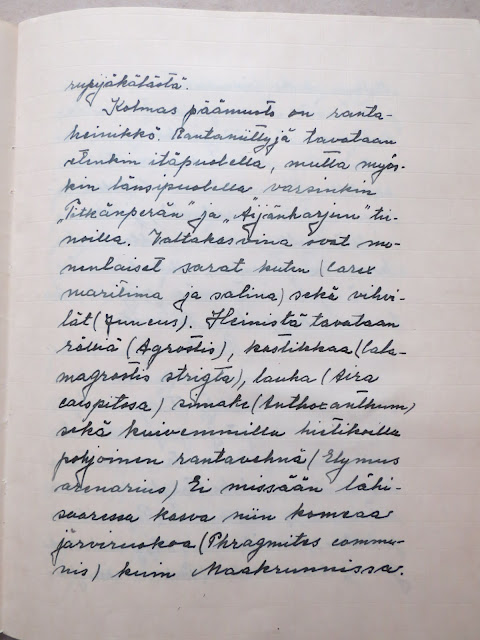 rupijäkälästä.
Kolmas päämuoto on ranta-
heinikkö. Rantaniittyjä tavataan
etenkin itäpuolella, mutta myös-
kin länsipuolella varsinkin
„Pitkänperän" ja „Äijänharjun" tii-
noilla. Valtakasvina ovat mo-
nenlaiset sarat kuten (Carex
maritima ja salina) sekä vihvi-
lät (Juncus). Heinistä tavataan
rölliä (Agrostis), kastikkaa (Cala-
magrostis strigta), lauha (Aira
caespitosa) simake (Anthoxanthum)
sekä kuivemmilla hietikoilla
pohjoinen rantavehnä (Elymus
arenarius) Ei missään lähi-
saaressa kasva niin komeaa
järviruokoa (Phragmites commu-
nis) kuin Maakrunnissa.